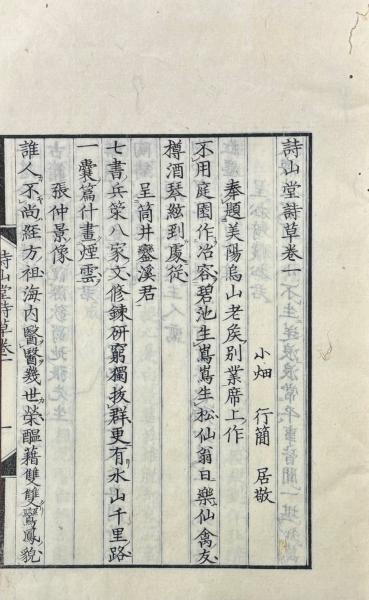 詩山堂詩草卷一
小畑 行簡 居敬
奉題美陽烏山老矦別業席上作
不用庭園作冶容碧池生嶌嶌生松仙翁日樂仙禽友
樽酒琴絃到處從
呈筒井鑾溪君
七書兵策八家文修鍊研窮獨拔群更有水山千里路
一囊篇什畫煙雲
張仲景像
誰人不尚經方祖海内醫醫幾世榮醞藉雙雙鸞鳳貌
詩山堂詩草卷一
一